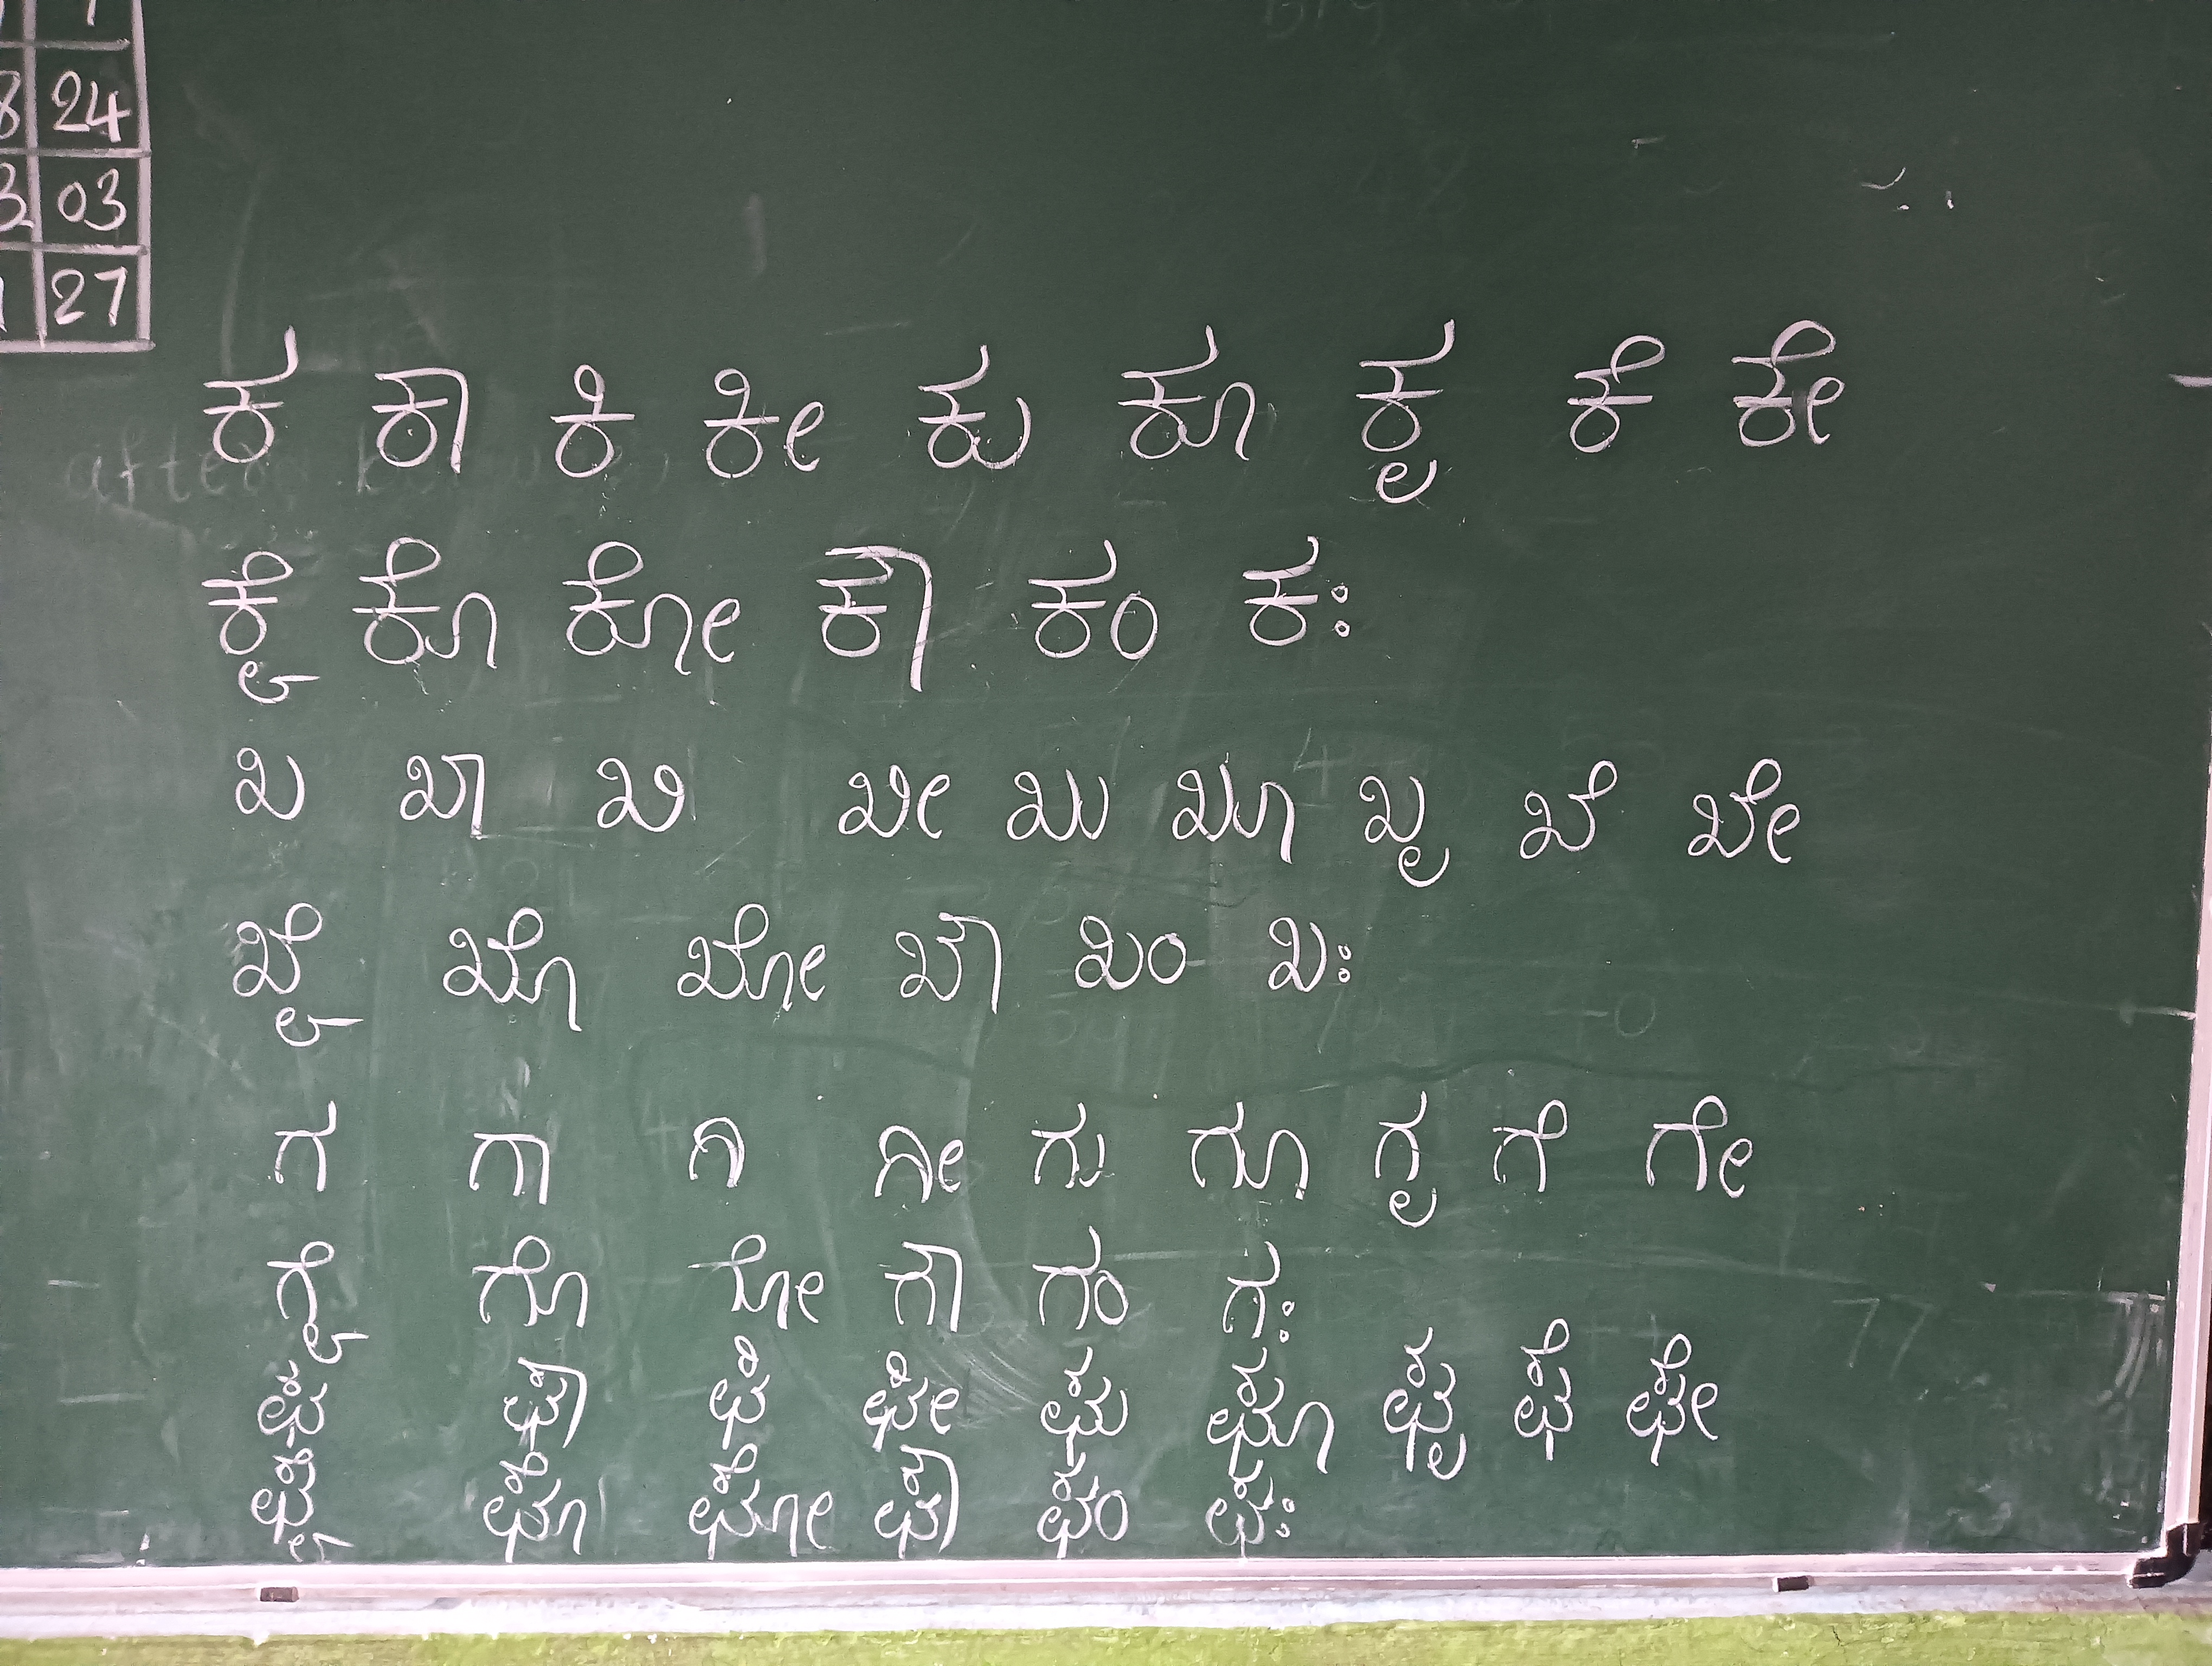 24
03
27
ಕ ಕಾ ಕಿ ಕೀ ಕು ಕೂ ಕೃ ಕೆ ಕೇ
ಕೈ ಕೊ ಕೋ ಕೌ ಕಂ ಕಃ
ಖ ಖಾ ಖಿ ಖೀ ಖು ಖೂ ಖೃ ಖೆ ಖೇ
ಖೈ ಖೊ ಖೋ ಖೌ ಖಂ ಖಃ
ಗ ಗಾ ಗಿ ಗೀ ಗು ಗೂ ಗೃ ಗೆ ಗೇ
ಗೈ ಗೊ ಗೋ ಗೌ ಗಂ ಗಃ
ಘ ಘಾ ಘಿ ಘೀ ಘು ಘೂ ಘೃ ಘೆ ಘೇ
ಘೈ ಘೊ ಘೋ ಘೌ ಘಂ ಘಃ